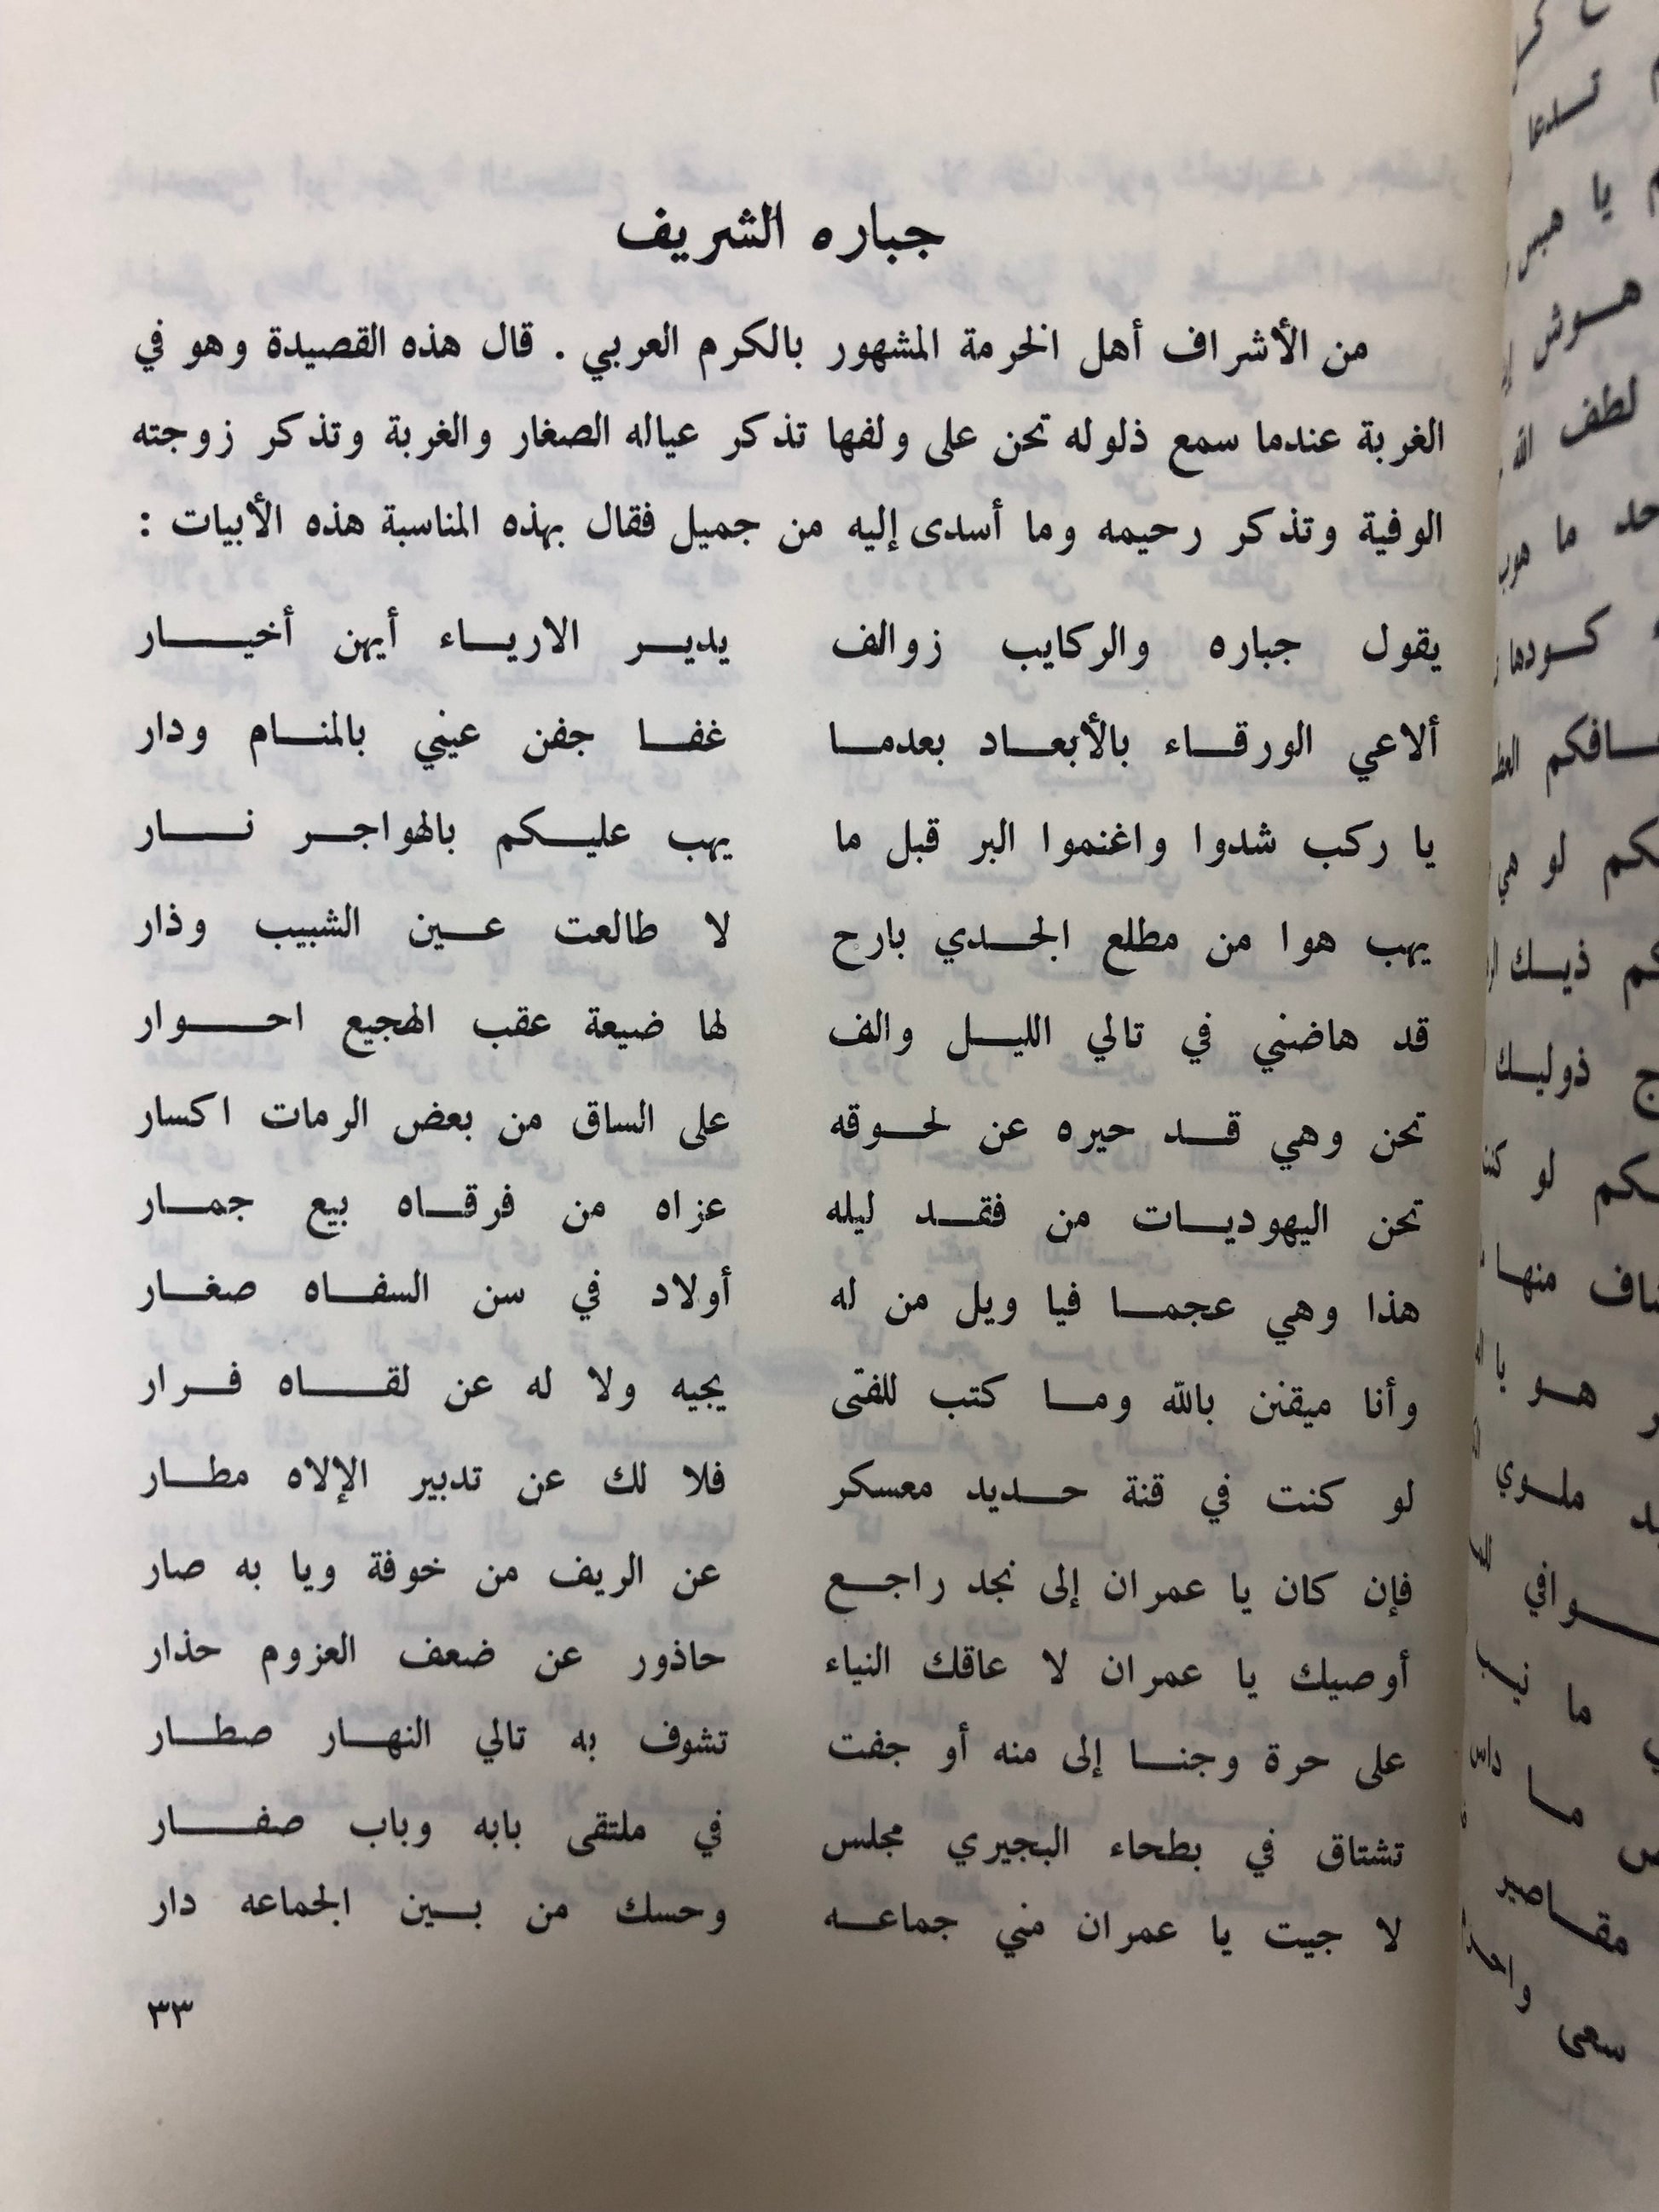 جباره الشريف
من الأشراف أهل الخرمة المشهور بالكرم العربي . قال هذه القصيدة وهو في
الغربة عندما سمع ذلوله تحن على ولفها تذكر عياله الصغار والغربة وتذكر زوجته
الوفية وتذكر رحيمه وما أسدى إليه من جميل فقال بهذه المناسبة هذه الأبيات :
يقول جباره والركايب زوالف يديـر الاريـاء أيهن أخيـار
ألاعي الورقـاء بالأبعـاد بعدمـا غفـا جفن عيني بالمنـام ودار
يا ركب شدوا واغنموا البر قبل ما يهب عليـكم بالهواجـر نـار
يهب هوا من مطلع الجـدي بارح لا طالعت عـين الشبيب وذار
قد هاضني في تالي الليـل والف لها ضيعة عقب الهجيع احـوار
تحن وهي قـد حيره عن لحـوقه على الساق من بعض الرمات اكسار
تحن اليهوديـات من فقـد ليله عزاه من فرقـاه بيع جمـار
هذا وهي عجمـا فيا ويل من له أولاد في سن السفـاه صغـار
وأنا ميقنن بالله ومـا كتب للفتى يجيه ولا له عن لقـاه فـرار
لو كنت في قنة حـديد معسكر فلا لك عن تدبير الإلاه مطـار
فإن كان يا عمران إلى نجد راجـع عن الريف من خوفة ويا به صار
أوصيك يا عمران لا عاقك النياء حاذور عن ضعف العزوم حذار
على حرة وجنـا إلى منه أو جفت تشوف به تالي النهـار صطـار
تشتاق في بطحاء البجيري مجلس في ملتقى بابه وباب صفـار
لا جيت يا عمران مني جماعـه وحسك من بـين الجماعه دار
٣٣
تـدعا
يا
لطف الله
ما
لو
ذيـك
ذوليـك
لو
منهـا
هـو
ملـوي
ما
مـا
سعى